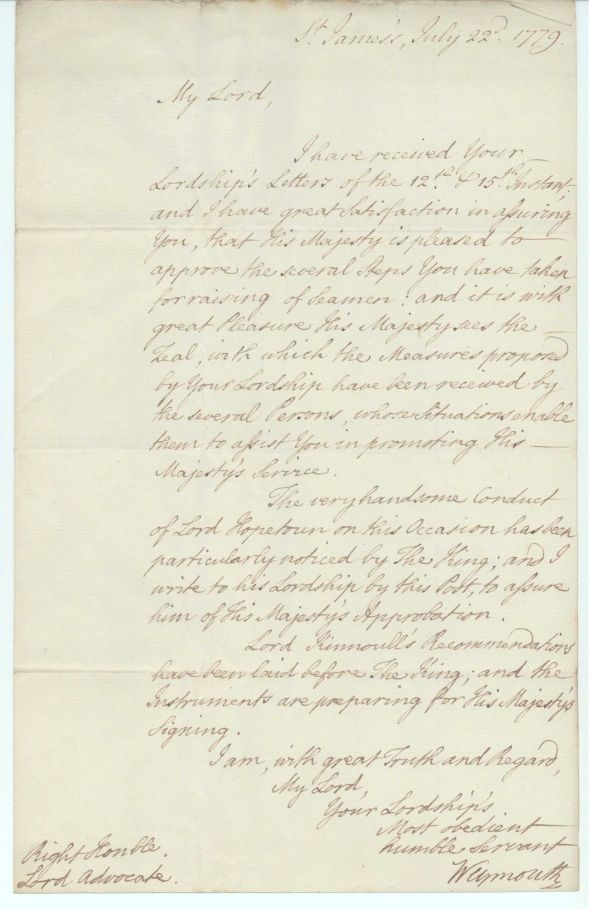 St. James's, July 22d. 1779.
My Lord,
I have received Your
Lordship's Letters of the 12th. & 15th. Instant,
and I have great Satisfaction in assuring
You, that His Majesty is pleased to
approve the several Steps You have taken
for raising of Seamen: and it is with
great Pleasure His Majesty sees the
Zeal, with which the Measures proposed
by Your Lordship have been received by
the several Persons, whose Situations enable
them to assist You in promoting His
Majesty's Service.
The very handsome Conduct
of Lord Hopetoun on this Occasion has been
particularly noticed by The King; and I
write to his Lordship by this Post, to assure
him of His Majesty's Approbation.
Lord Kinnoull's Recommendations
have been laid before The King; and the
Instruments are preparing for His Majesty's
Signing.
I am, with great Truth and Regard,
My Lord,
Your Lordship's
Most obedient
humble Servant
Weymouth
Right Honble.
Lord Advocate.